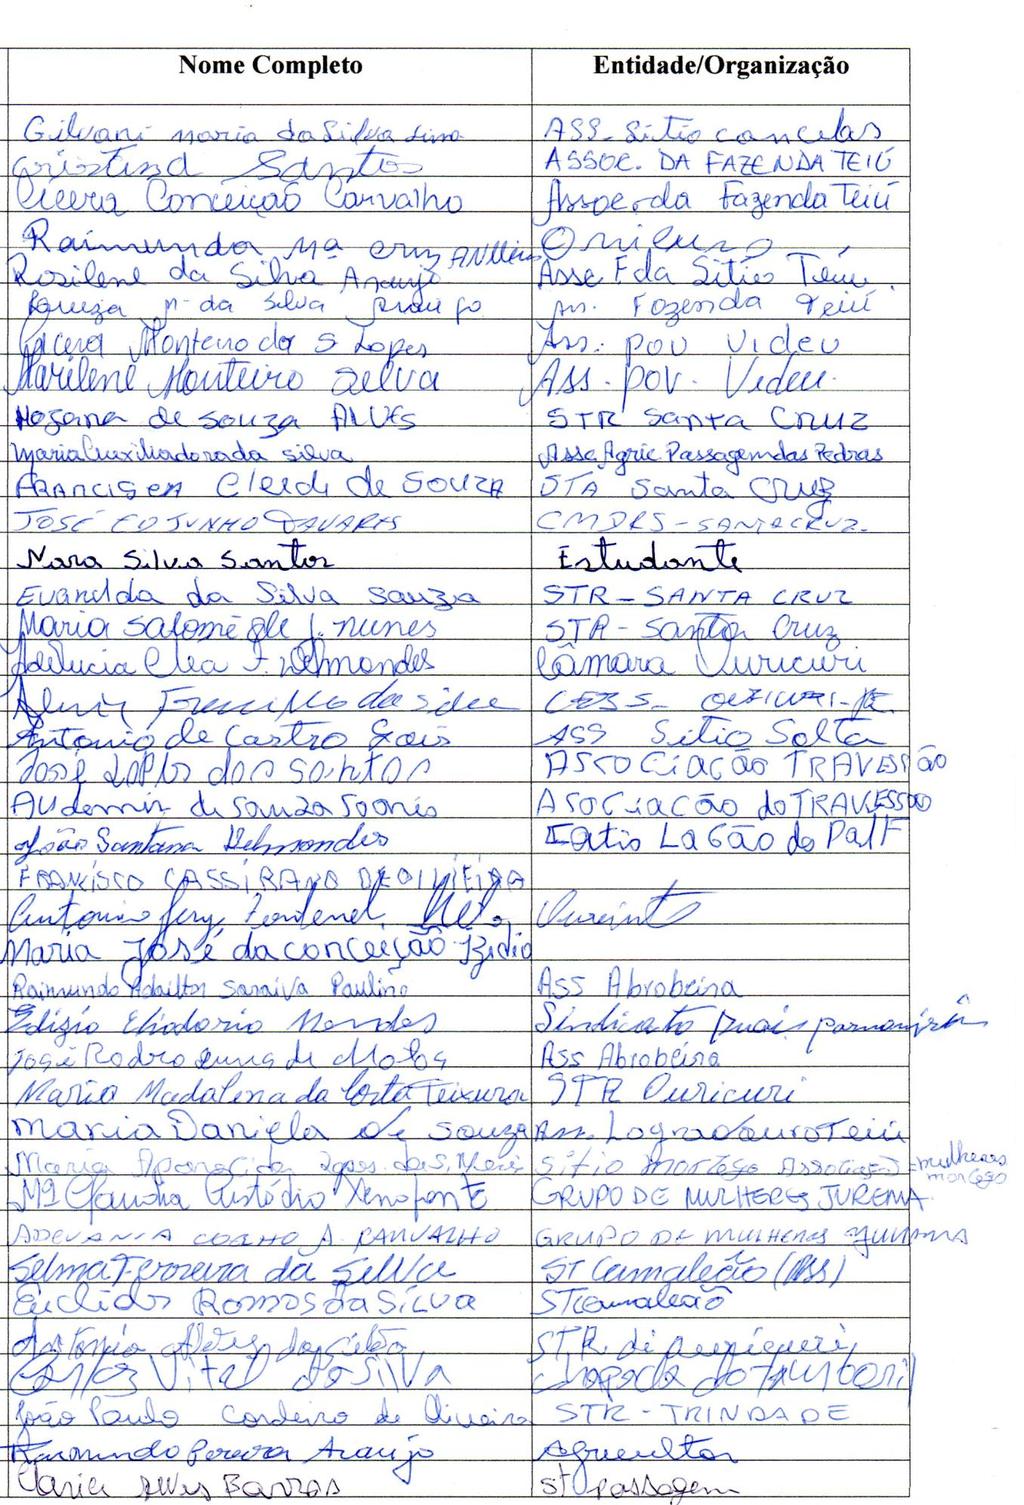 Nome Completo Entidade/Organização
Gilvani maria da Silva Lima ASS. Sitio cancelas
Cristina Santos ASSOC. DA FAZENDA TEIÚ
Cicera Conceição Carvalho Assoc. da Fazenda Teiú
Raimunda Mª cruz
Rosilene da Silva Araujo Assc F da Sitio Teiú.
Mª da Silva Araujo Ass. Fazenda Teiú
Monteiro da S Lopes Ass. pov Videu
Marilene Monteiro Silva Ass. pov. Videu.
Mozana de Souza ALVES STR Santa CRUZ
Maria Auxiliadora da Silva Assc Agric Passagem das Pedras
FRANCISCA Cleide de SOUZA STR Santa Cruz
JOSÉ TAVARES CMDRS-SANTACRUZ.
Nara Silva Santos Estudante
Evanilda da Silva Souza STR-SANTA CRUZ
Maria Salomé de J. nunes STR-Santa Cruz
Adelucia Clea F. Delmondes Câmara Ouricuri
da silva OURICURI-PE
Antonio de Castro Gois ASS Sitio Solta
José Lopes dos Santos ASSOCiação TRAVESSÃO
Audemir de Souza Soares ASOCiação do TRAVESSÃO
João Santana Delmondes Lagão do
FRANCISCO CASSIRANO DE OLIVEIRA
Antonio Neto
Maria José da conceição Izidio
Raimundo Adailton Saraiva Paulino ASS Abrobeira
Edizio Eliodorio Mendes Sindicato parnamirim
José Mota Ass Abrobeira
Maria Madalena da Costa Teixeira STR Ouricuri
Maria Daniela de Souza Ass. Logradouro Teiú
Maria Aparecida Sitio morcego Associação mulheres
morcego
Mª Claudia Custódio Xenofonte GRUPO DE MULHERES JUREMA
ADEVANIA COELHO A. CARVALHO GRUPO DE MULHERES JUREMA
Selma Ferreira da Silva ST Camaleão (Ass)
Euclides Ramos da Silva ST camaleão
Antonio Alves
Carlos Vital da Silva Chapada do Tamboril
João Paulo Cordeiro de Oliveira STR-TRINDADE
Raimundo Pereira Araujo Agricultor
Alves Barros St passagem